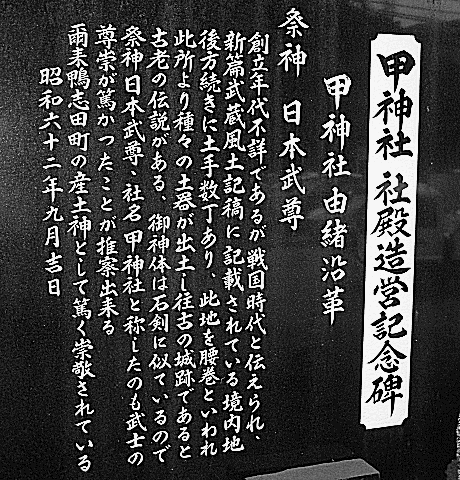 甲神社 社殿造営記念碑
甲神社由緒沿革
祭神 日本武尊
創立年代不詳であるが戦国時代と伝えられ、
新篇武蔵風土記稿に記載されている境内地
後方続きに土手数丁あり、此地を腰巻といわれ
此所より種々の土器が出土し往古の城跡であると
古老の伝説がある、御神体は石剣に似ているので
祭神日本武尊・社名甲神社と称したのも武士の
尊崇が篤かったことが推察出来る
爾来鴨志田町の産土神として篤く崇敬されている
昭和六十二年九月吉日